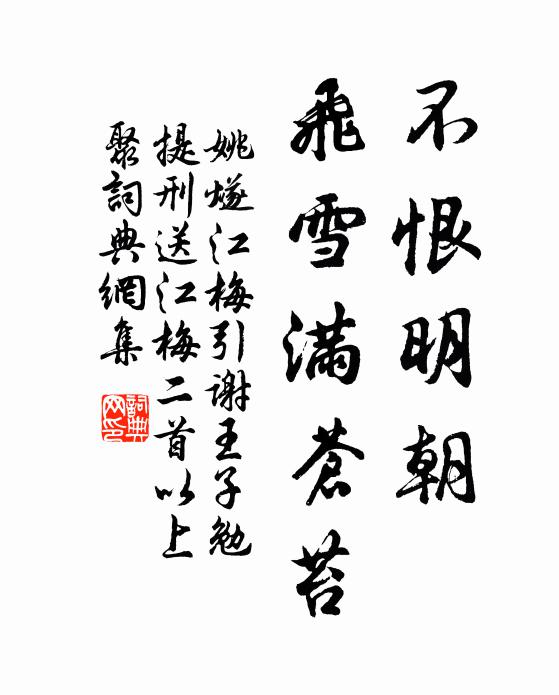 不恨明朝
飛雪滿蒼苔
姚燧江梅引謝王子勉
提刑送江梅二首以上
聚詞典網集
詞典
网印